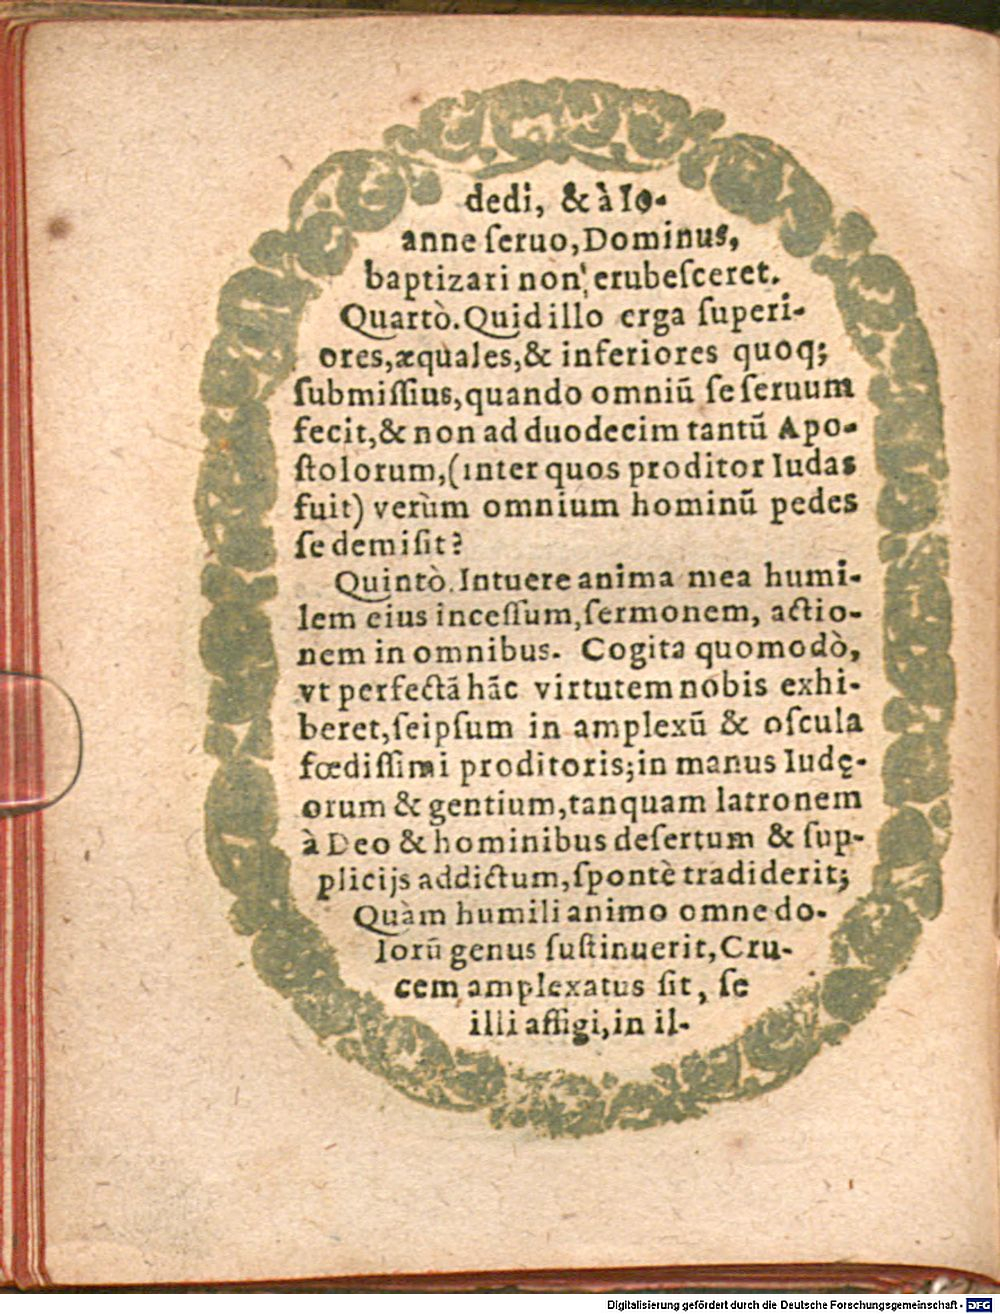 dedi, & à Io-
anne ſeruo, Dominus,
baptizari non erubeſceret.
Quartò. Quid illo erga ſuperi-
ores, æquales, & inferiores quoq;
ſubmiſſius, quando omniũ ſe ſeruum
fecit, & non ad duodecim tantũ Apo-
ſtolorum, (inter quos proditor Iudas
fuit) verùm omnium hominũ pedes
ſe demiſit?
Quintò. Intuere anima mea humi-
lem eius inceſſum, ſermonem, actio-
nem in omnibus. Cogita quomodò,
vt perfectã hãc virtutem nobis exhi-
beret, ſeipſum in amplexũ & oſcula
fœdiſſimi proditoris; in manus Iudę-
orum & gentium, tanquam latronem
à Deo & hominibus deſertum & ſup-
plicijs addictum, ſpontè tradiderit;
Quàm humili animo omne do-
lorũ genus ſuſtinuerit, Cru-
cem amplexatus ſit, ſe
illi affigi, in il-
Digitalisierung gefördert durch die Deutsche Forschungsgemeinschaft - DFG